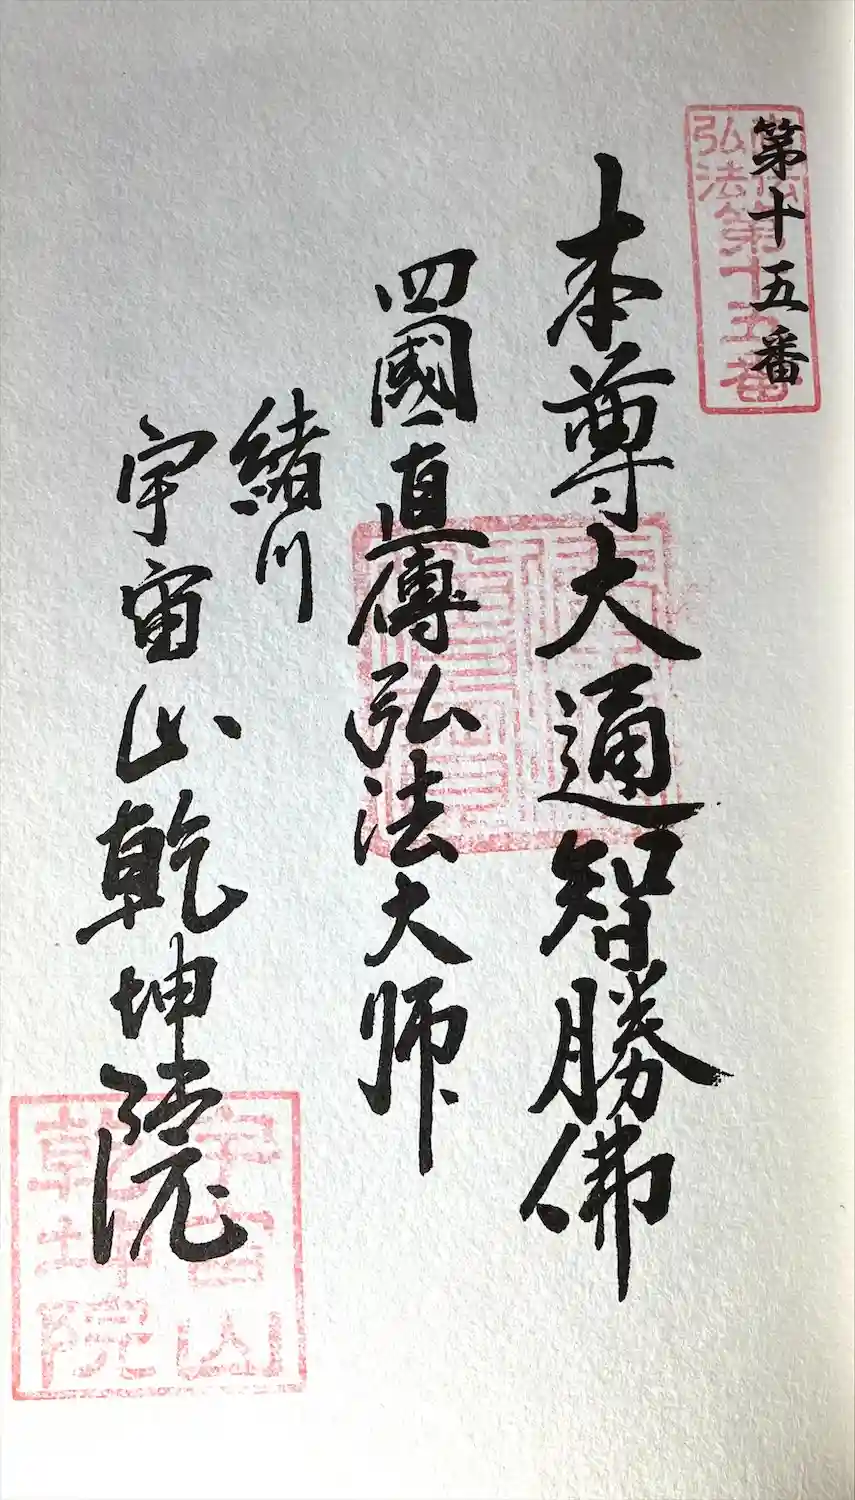 第十五番
弘法
第十五番
本尊大通智勝佛
四國直傳弘法大师
緒川
宇宙山乾坤院
宇宙山
乾坤院